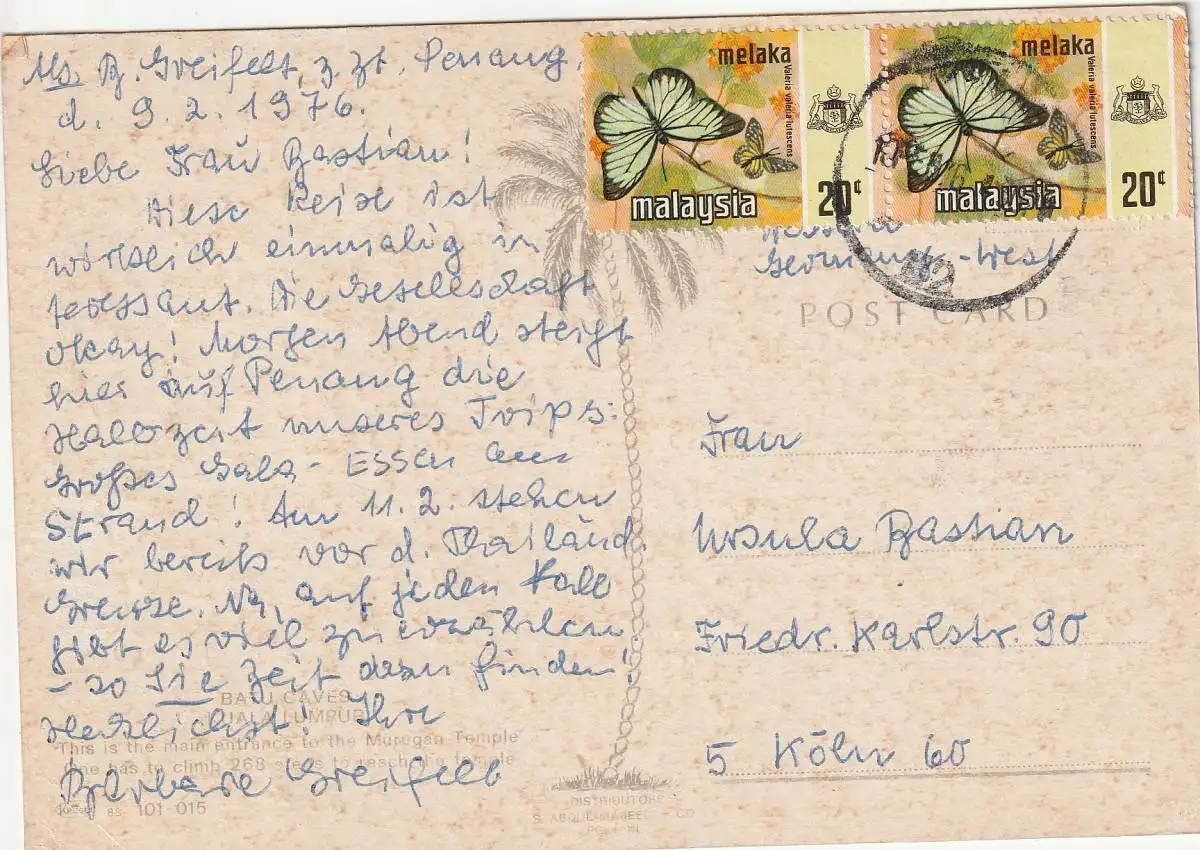 Abs. B. Greifelt, z. Zt. Penang,
d. 9.2.1976.
Liebe Frau Bastian!
Diese Reise ist
wirklich einmalig in
teressant. Die Gesellschaft
okay! Morgen Abend steigt
hier auf Penang die
Halbzeit unseres Trips:
Großes Gala-Essen am
Strand! Am 11.2. stehen
wir bereits vor d. Thailänd.
Grenze. Na, auf jeden Fall
gibt es viel zu erzählen
- so Sie Zeit dazu finden!
Herzlichst! Ihre
Barbara Greifelt
BATU CAVES
KUALA LUMPUR
This is the main entrance to the Murugan Temple
One has to climb 268 steps to reach the temple
88 101-015
melaka
Valeria valeria lutescens
malaysia
20¢
melaka
Valeria valeria lutescens
malaysia
20¢
Germany-West
POST CARD
Frau
Ursula Bastian
Friedr. Karlstr. 90
5 Köln 60
DISTRIBUTORS